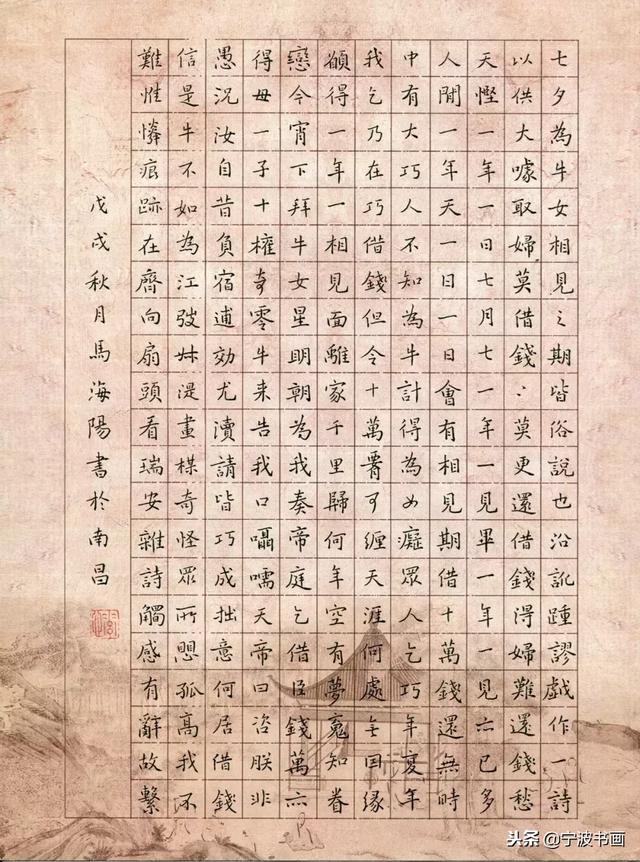 七夕為牛女相見之期皆俗說也沿訛踵謬戲作一詩
以供大噱取婦莫借錢:莫更還借錢得婦難還錢愁
天慳一年一日七月七一年一見畢一年一見六已多
人間一年天一日一日會有相見期借十萬錢還無時
中有大巧人不知為牛計得為女癡眾人乞巧年復年
我乞乃在巧借錢但令十萬可纏天涯何處無因緣
得一年一相見面離家千里歸何年空有夢魂知眷
戀今宵下拜牛女星明朝為我奏帝庭乞借臣錢萬六
得母一子十權奇零牛来告我口囁嚅天帝曰咨朕非
愚況汝自昔負宿逋効尤瀆請皆巧成拙意何居借錢
信是牛不如為江弢妹湜畫楳奇怪眾所孤高我不
難惟憐痕跡在齊向扇頭看瑞安雜詩觸感有辭故繫
戊戌秋月馬海陽書於南昌
头条@宁波书画